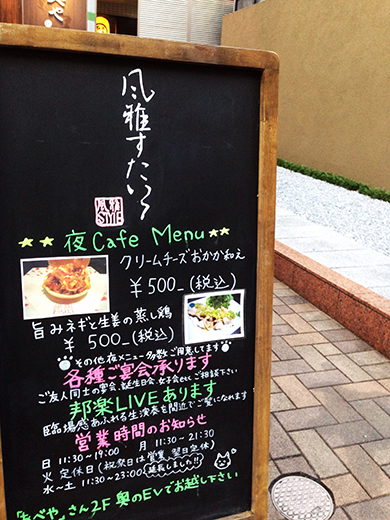 べや
風雅すたいる
風雅
STYLE
★★夜Cafe Menu★★
クリームチーズおかか和え
￥500_(税込)
旨みネギと生姜の蒸し鶏
￥500_(税込)
その他夜メニュー多数ご用意してます
各種ご宴会承ります
ご友人同士の宴会、誕生日会、女子会etc ご相談下さい
邦楽LIVEあります
臨場感あふれる生演奏を間近でご覧になれます
営業時間のお知らせ
日 11:30~19:00 月 11:30~21:30
火 定休日(祝祭日は営業 翌日定休)
水~土 11:30~23:00(延長しました!!)
「もべや」さん2F 奥のEVでお越し下さい